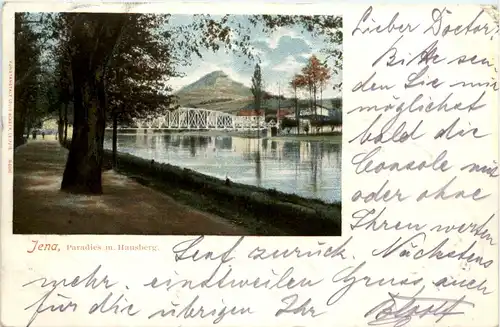 Lieber Doctor,
Bitte sen-
den Sie mir
möglichst
bald die
Console mit
oder ohne
Ihren werten
Jena, Paradies m. Hausberg.
Senf zurück. Nächstens
mehr, einstweilen Gruss auch
für die übrigen Ihr